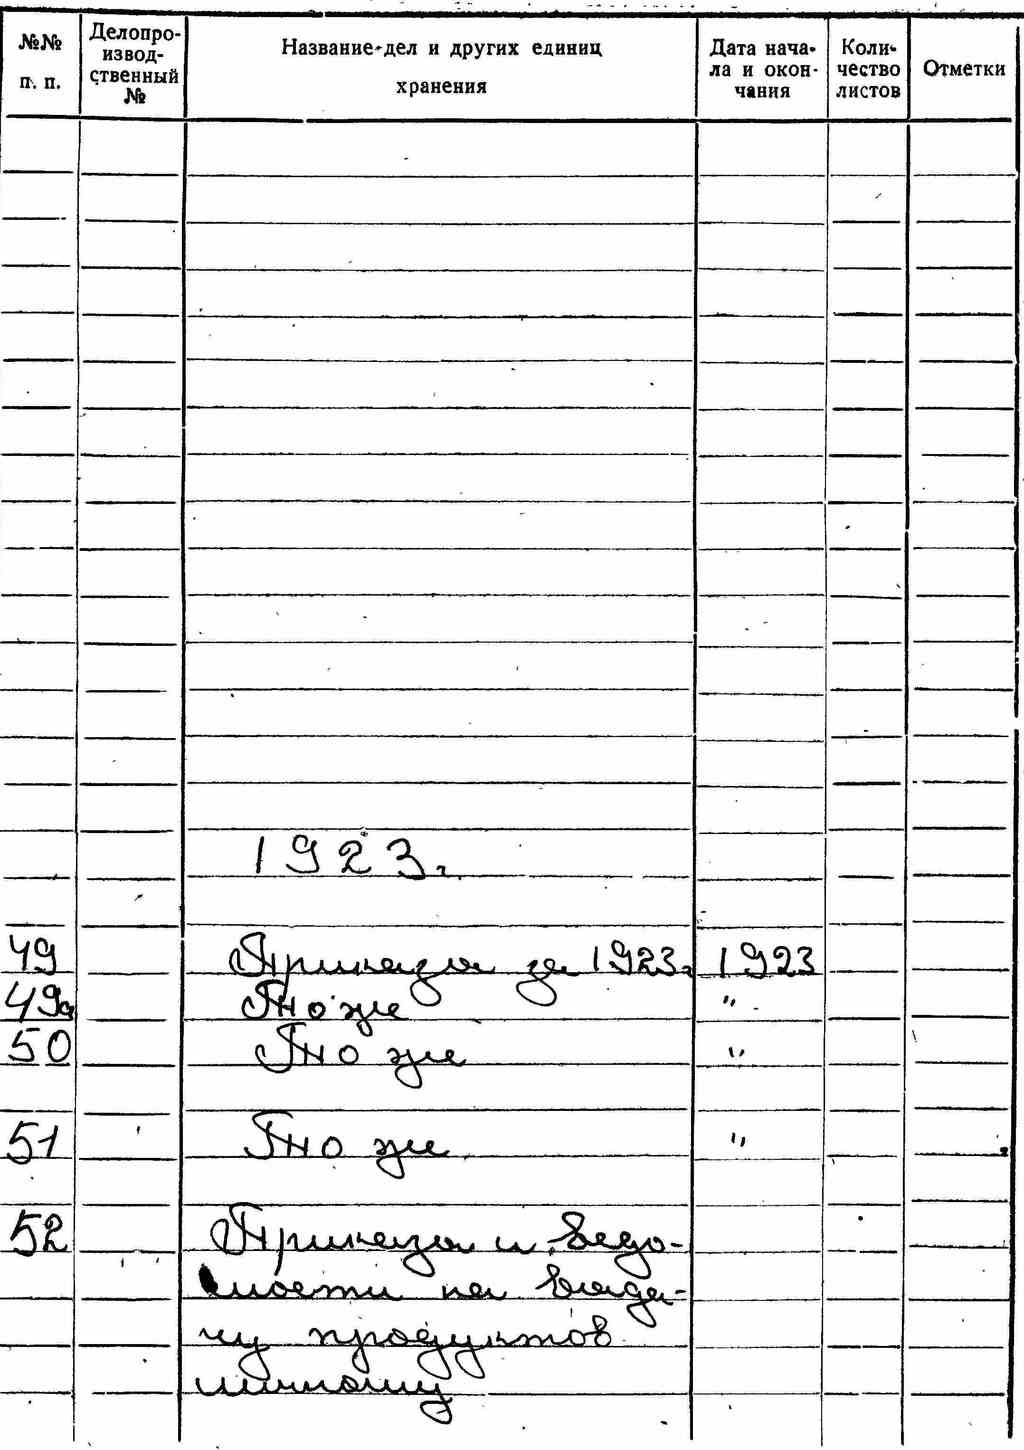 №№ п. п. Делопроизводственный № Название дел и других единиц хранения Дата начала и окончания Количество листов Отметки
1923 г.
49 Приказы за 1923 г. 1923
49а То же "
50 То же "
51 То же "
52 Приказы и ведо-
мости на выда-
чу продуктов
личному